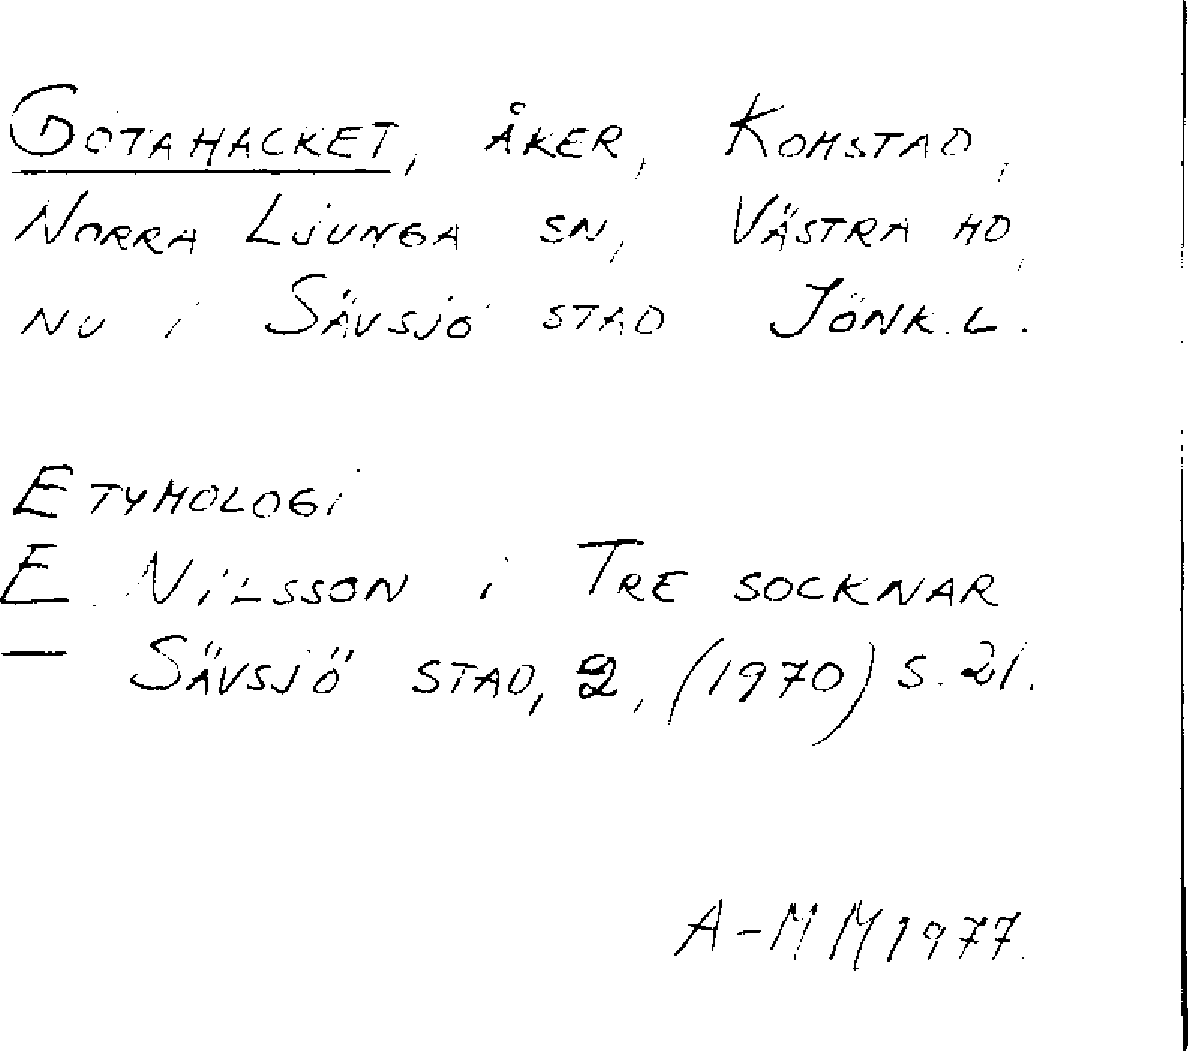 GÖTAHACKET, ÅKER, KOMSTAD,
NORRA LJUNGA SN, VÄSTRA HD,
NU I SÄVSJÖ STAD JÖNK.L.
ETYMOLOGI
E. NILSSON I TRE SOCKNAR
— SÄVSJÖ STAD, 2, (1970) S. 21.
A-M M 1977.